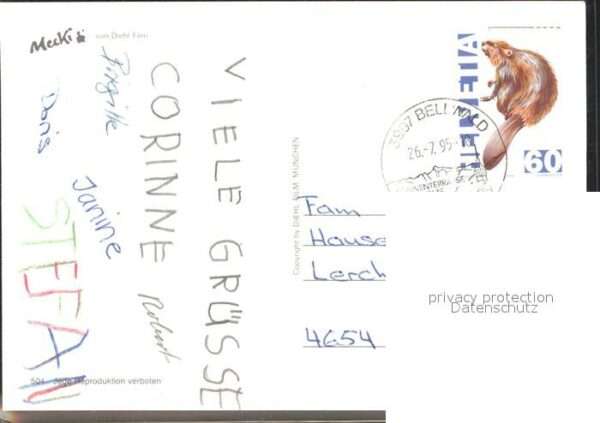 Mecki
vom Diehl Film
Brigitte
Doris
Janine
STEFAN
VIELE GRÜSSE
CORINNE
Robert
501 Jede Reproduktion verboten
Copyright by DIEHL FILM MÜNCHEN
HELVETIA
60
3997 BELLWALD
26.-7. 95-
Fam
Hause
Lerch
4654
privacy protection
Datenschutz